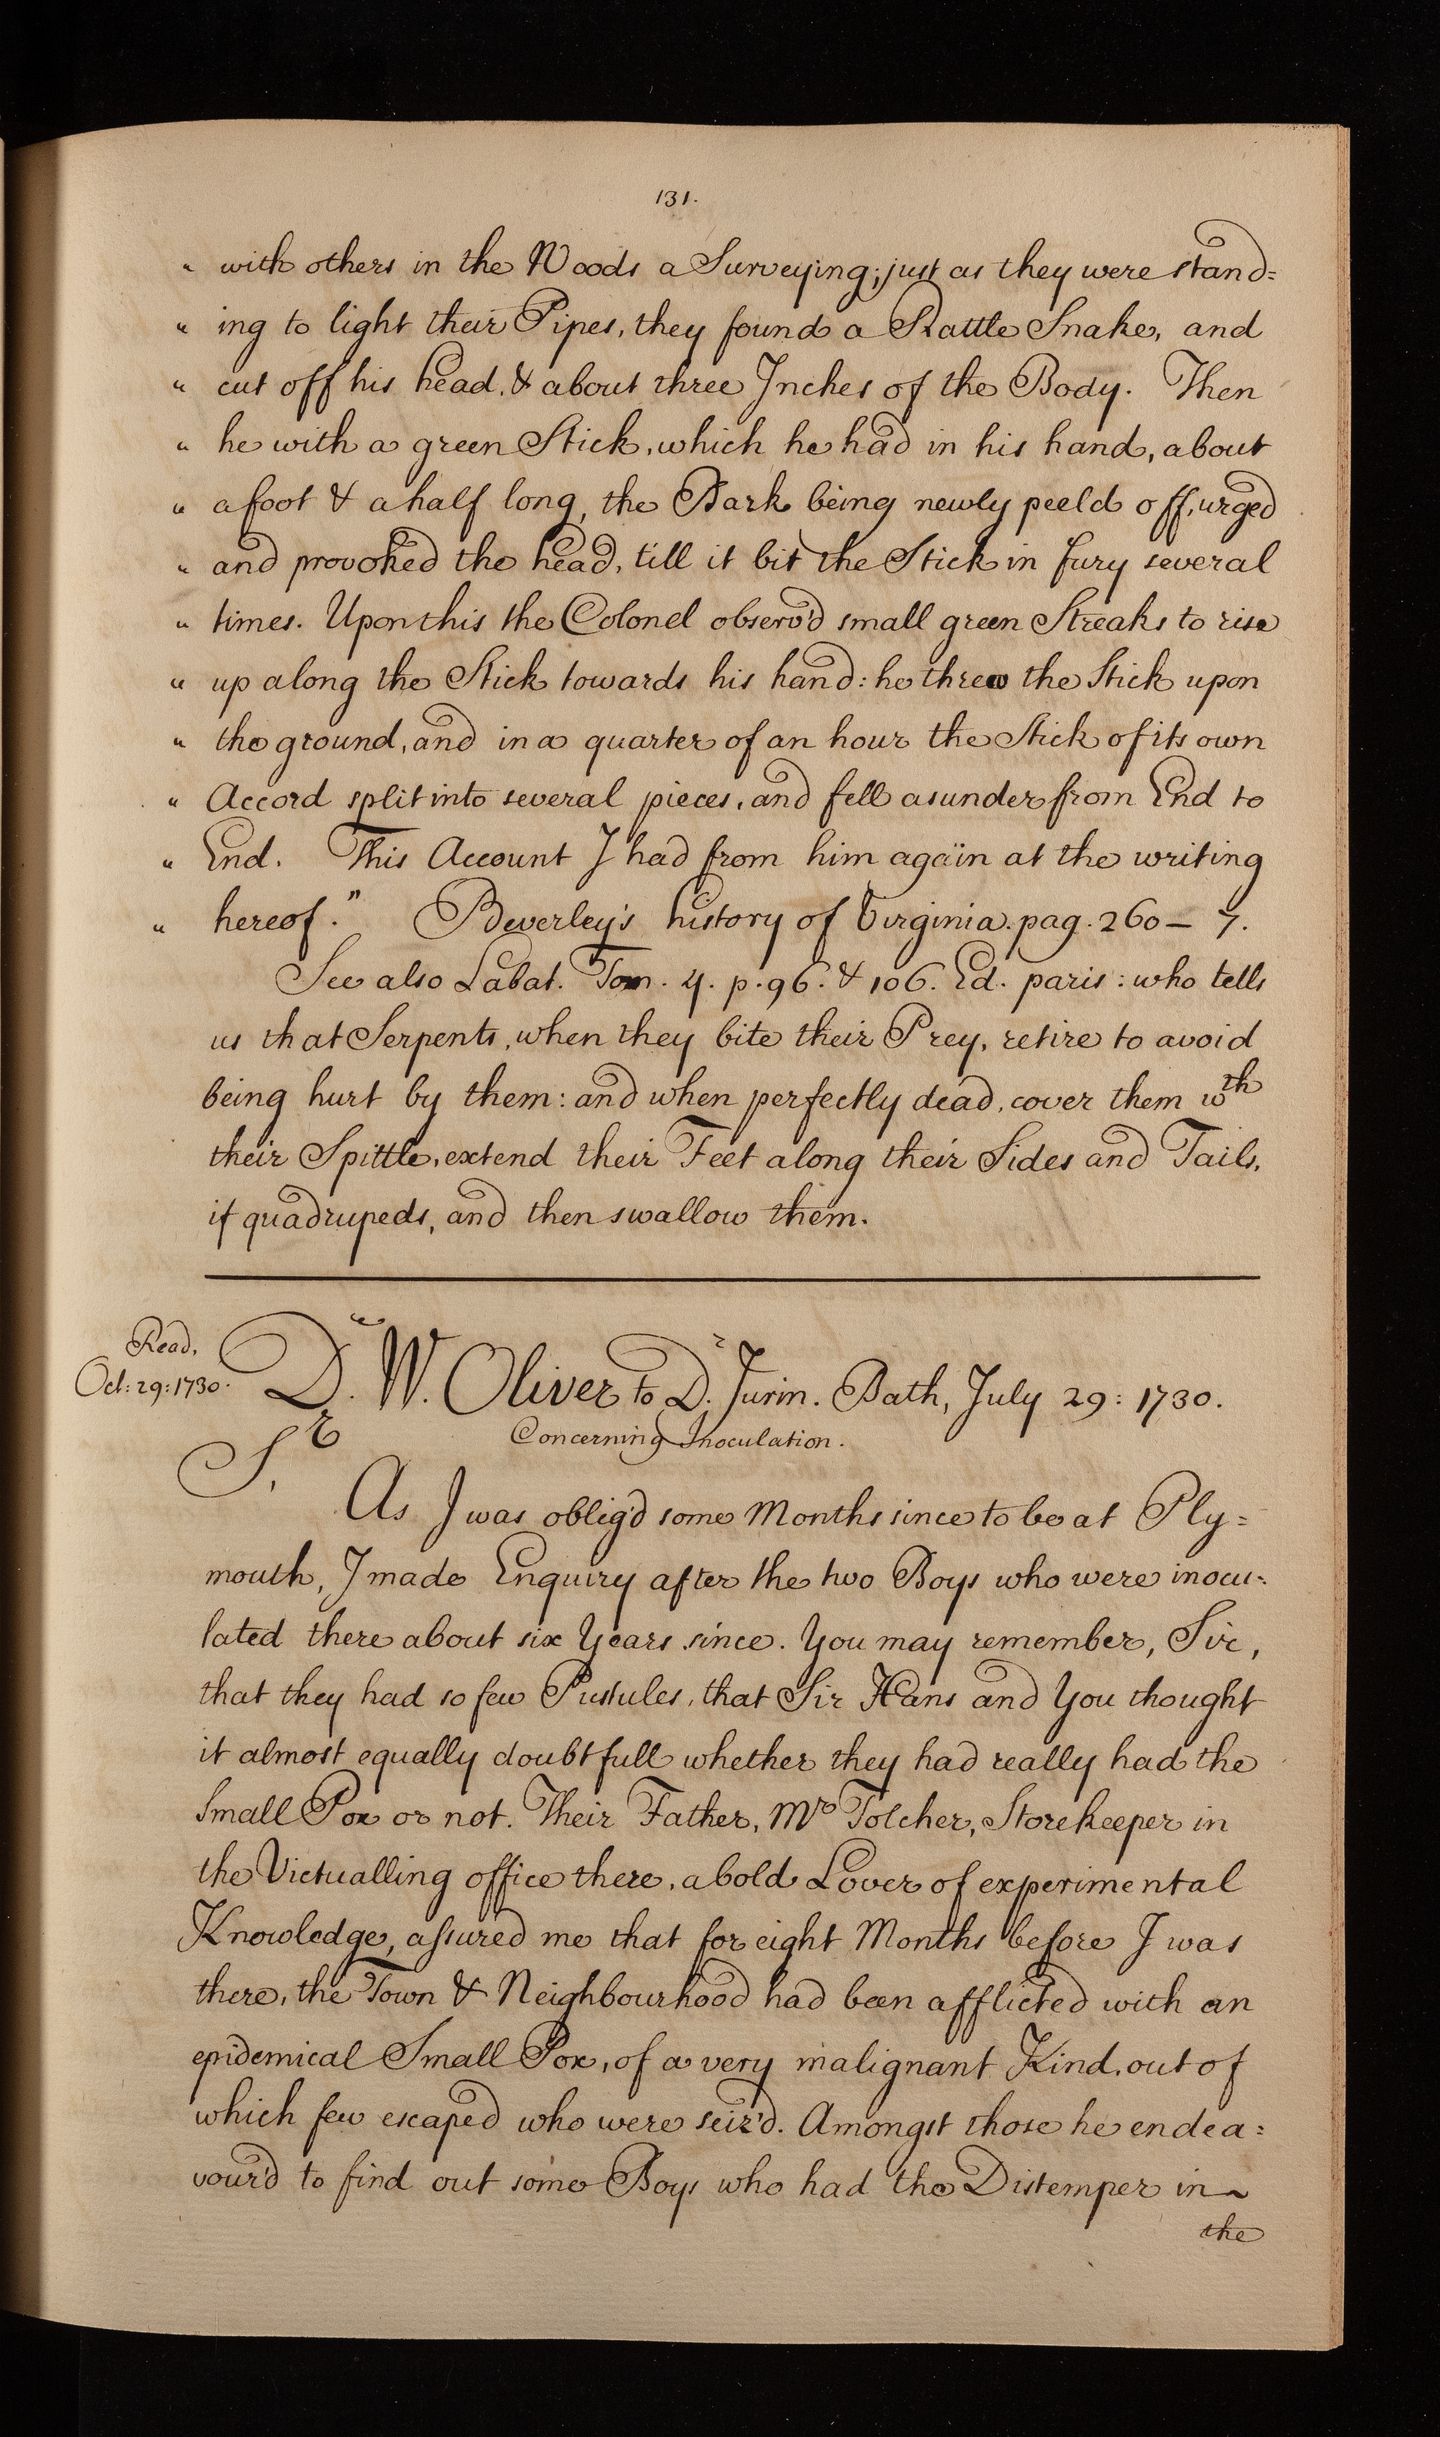 131.
" with others in the Woods a Surveying; just as they were stand=
" ing to light their Pipes, they found a Rattle Snake, and
" cut off his head, & about three Inches of the Body. Then
" he with a green Stick, which he had in his hand, about
" a foot & a half long, the Bark being newly peeld off, urged
" and provoked the head, till it bit the Stick in fury several
" times. Upon this the Colonel observ'd small green Streaks to rise
" up along the Stick towards his hand: he threw the Stick upon
" the ground, and in a quarter of an hour the Stick of its own
" Accord split into several pieces, and fell asunder from End to
" End. This Account I had from him again at the writing
" hereof." Beverley's history of Virginia. pag. 260 – 7.
See also Labat. Tom. 4. p. 96. & 106. Ed. paris: who tells
us that Serpents, when they bite their Prey, retire to avoid
being hurt by them: and when perfectly dead, cover them wth
their Spittle, extend their Feet along their Sides and Tails,
if quadrupeds, and then swallow them.
Read,
Oct: 29: 1730.
Dr. W. Oliver to Dr. Jurin. Bath, July 29: 1730.
Concerning Inoculation.
Sr.
As I was oblig'd some Months since to be at Ply=
mouth, I made Enquiry after the two Boys who were inocu=
lated there about six Years since. You may remember, Sir,
that they had so few Pustules, that Sir Hans and You thought
it almost equally doubtfull whether they had really had the
Small Pox or not. Their Father, Mr Tolcher, Storekeeper in
the Victualling office there, a bold Lover of experimental
Knowledge, assured me that for eight Months before I was
there, the Town & Neighbourhood had been afflicted with an
epidemical Small Pox, of a very malignant Kind, out of
which few escaped who were seiz'd. Amongst those he endea=
vour'd to find out some Boys who had the Distemper in
the